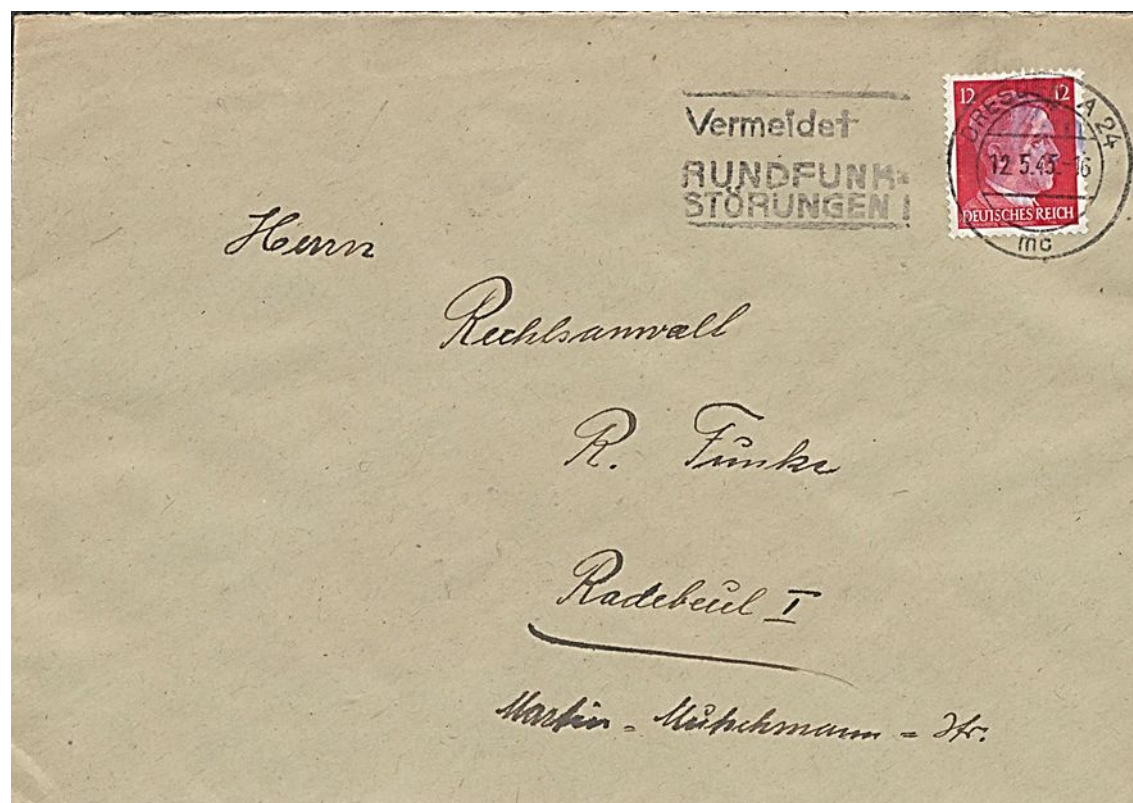 Vermeidet
RUNDFUNK=
STÖRUNGEN!
12 12
DEUTSCHES REICH
DRESDEN A 24
12.5.45.-16
mc
Herrn
Rechtsanwalt
R. Funke
Radebeul I
Martin-Mutschmann=Str.